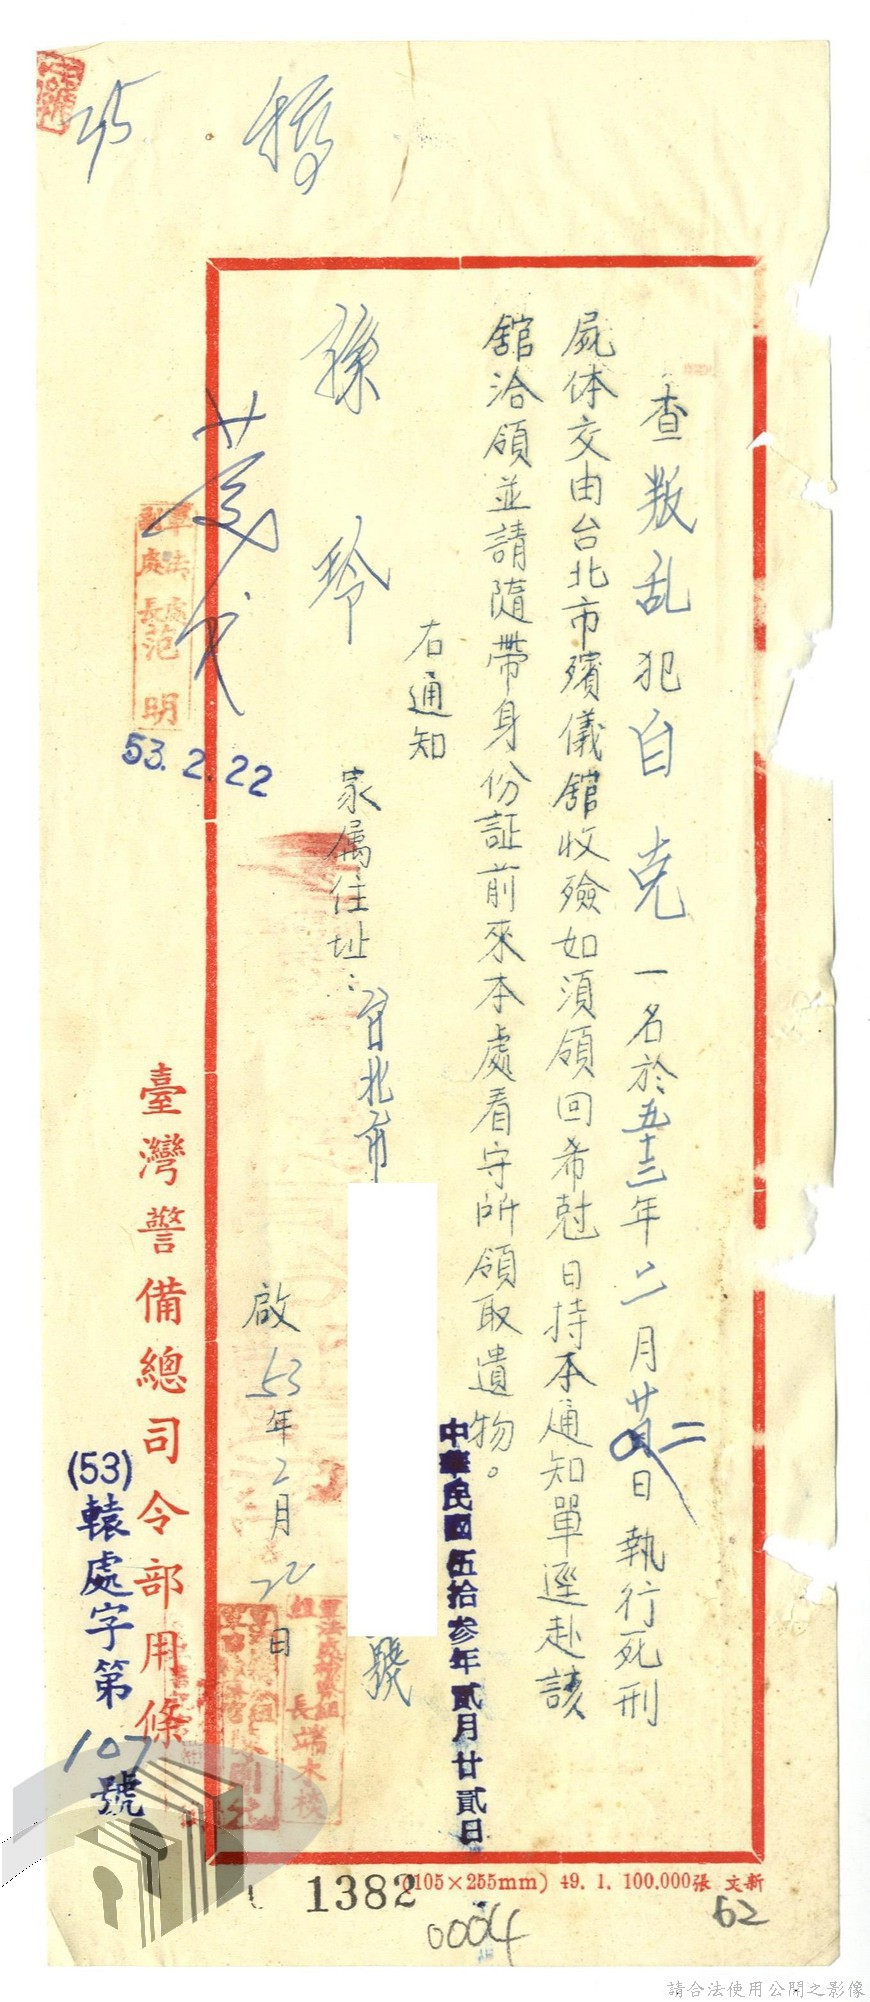 稿
查叛乱犯白克一名於五十三年二月廿二日執行死刑
屍体交由台北市殯儀舘收殮如須領回希尅日持本通知單逕赴該
舘洽領並請隨帶身份証前來本處看守所領取遺物。
右通知
家属住址：台北市
號
中華民國伍拾叁年貳月廿貳日
啟 53年2月22日
軍法處
副處長范明
53.2.22
組長端木棪
臺灣警備總司令部用條
(53)轅處字第107號
1382
(105×255mm) 49. 1. 100.000張 文新
0004
62
請合法使用公開之影像